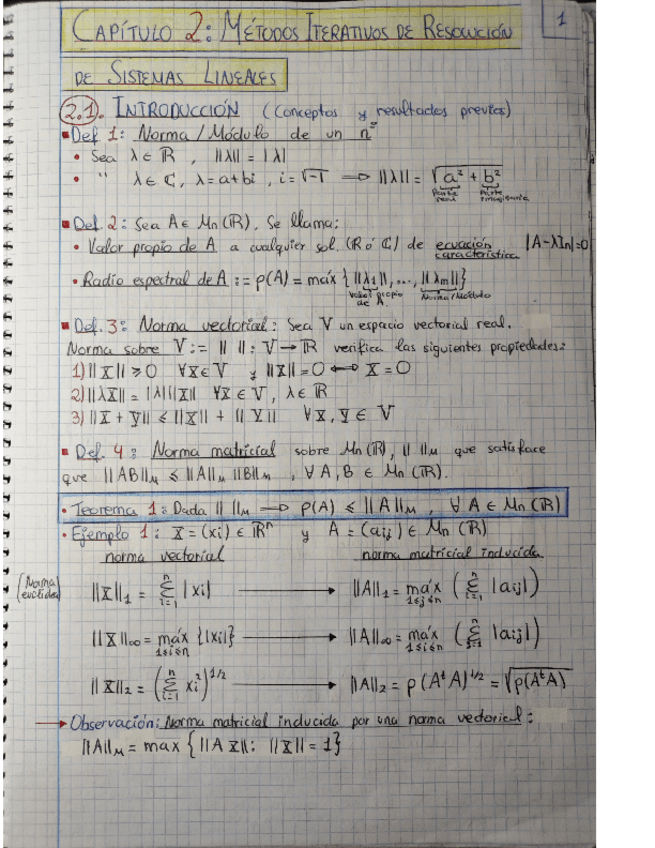 1
CAPÍTULO 2: MÉTODOS ITERATIVOS DE RESOLUCIÓN
DE SISTEMAS LINEALES
2.1. INTRODUCCIÓN (Conceptos y resultados previos)
▪ Def 1: Norma / Módulo de un nº
• Sea λ ∈ ℝ, ||λ|| = |λ|
• " λ ∈ ℂ, λ = a + bi, i = √-1 ⟹ ||λ|| = √(a² + b²)
Parte real Parte imaginaria
▪ Def. 2: Sea A ∈ Mn(ℝ). Se llama:
• Valor propio de A a cualquier sol. (ℝ ó ℂ) de ecuación característica |A-λIn|=0
• Radio espectral de A := ρ(A) = máx {||λ1||, ..., ||λm||}
Valor propio de A. Norma/Módulo
▪ Def. 3: Norma vectorial: Sea V un espacio vectorial real.
Norma sobre V := || ||: V → ℝ verifica las siguientes propiedades:
1) ||x|| ≥ 0 ∀x ∈ V y ||x|| = 0 ⟺ x = 0
2) ||λx|| = |λ| ||x|| ∀x ∈ V, λ ∈ ℝ
3) ||x + y|| ≤ ||x|| + ||y|| ∀x, y ∈ V
▪ Def. 4: Norma matricial sobre Mn(ℝ), || ||M que satisface
que ||AB||M ≤ ||A||M ||B||M, ∀ A, B ∈ Mn(ℝ).
• Teorema 1: Dada || ||M ⟹ ρ(A) ≤ ||A||M, ∀ A ∈ Mn(ℝ)
• Ejemplo 1: x = (xi) ∈ ℝⁿ y A = (aij) ∈ Mn(ℝ)
norma vectorial norma matricial inducida.
(Norma euclídea) ||x||1 = Σ(i=1..n) |xi| → ||A||1 = máx 1≤j≤n (Σ(i=1..n) |aij|)
||x||∞ = máx 1≤i≤n {|xi|} → ||A||∞ = máx 1≤i≤n (Σ(j=1..n) |aij|)
||x||2 = (Σ(i=1..n) xi²)^1/2 → ||A||2 = ρ(AᵗA)^1/2 = √ρ(AᵗA)
→ Observación: Norma matricial inducida por una norma vectorial:
||A||M = max {||Ax||: ||x|| = 1}